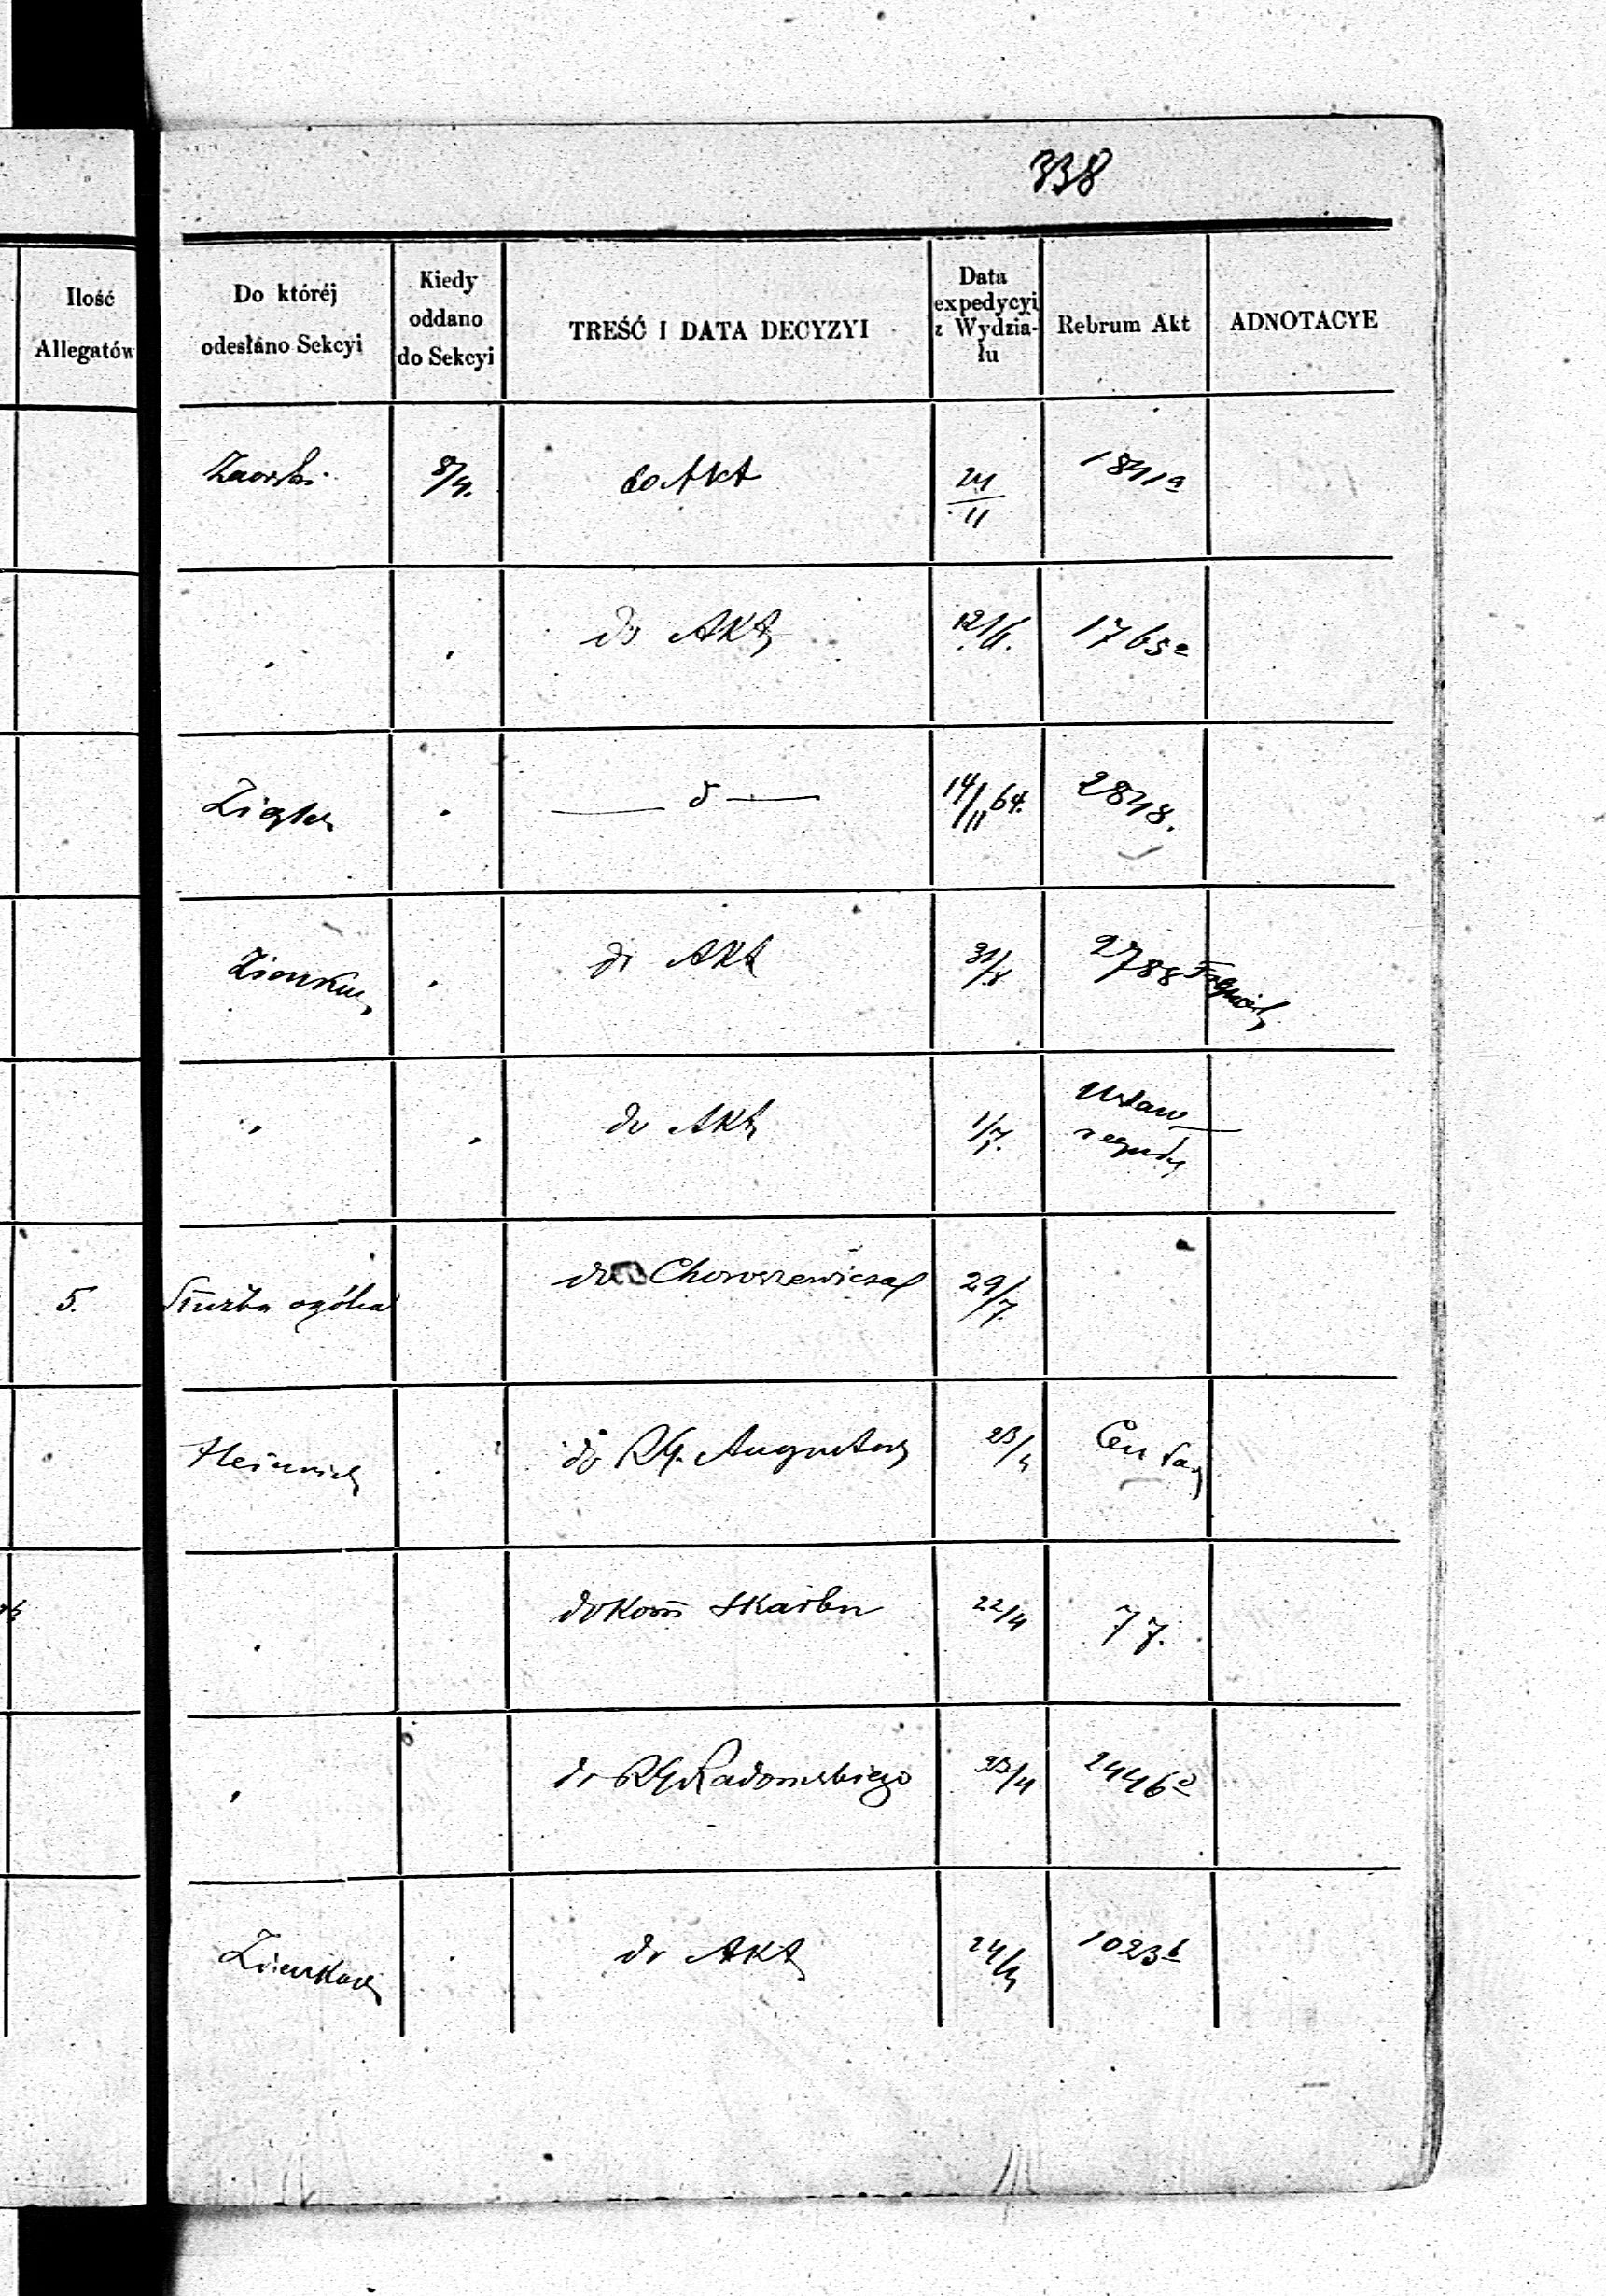 338
Ilość
Allegatów
Do któréj
odesłano Sekcyi
Kiedy
oddano
do Sekcyi
TREŚĆ I DATA DECYZYI
Data
expedycyi
z Wydzia-
łu
Rebrum Akt
ADNOTACYE
8/4. do Akt 24/11 1841a
do Akt 12/6. 1765a
Zigler — d — 14/11 64. 2848.
do Akt 31/8 2788
do Akt 1/7.
5. Służba ogólna do Choroszewicza 29/7.
Heinrich do RG. Augustow 23/4
do Kom Skarbu 22/4 77.
do RG Radomskiego 23/4 2446
do Akt 24/4 1023b